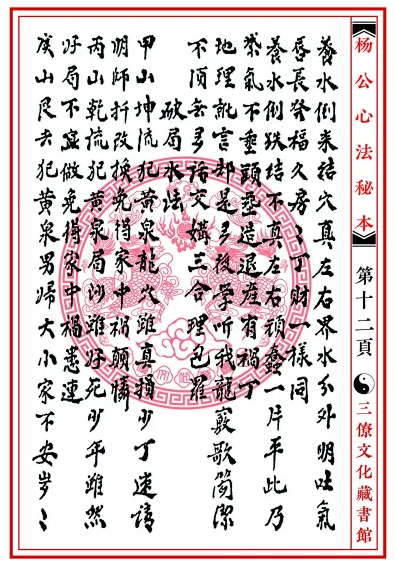 杨公心法秘本
第十二頁
三僚文化藏書館
養水倒来结穴真左右界水分外明吐氣
唇長發福久房〻丁財一樣同
養水倒跌结不真左右頑蠢一片平此乃
煞氣不垂頭塟造退產有禍丁
地理訛言却是多後学听我龍竅歌简潔
不須多話交媾三合理包羅
破局水法
甲山坤流犯黄泉龍穴雖真損少丁速請
明师拆改换免得家中禍顛
丙山乾流犯黄泉局沙雖好死少年雖然
好局不宜做免得家中禍患連
庚山艮去犯黄泉男婦大小家不安岁〻